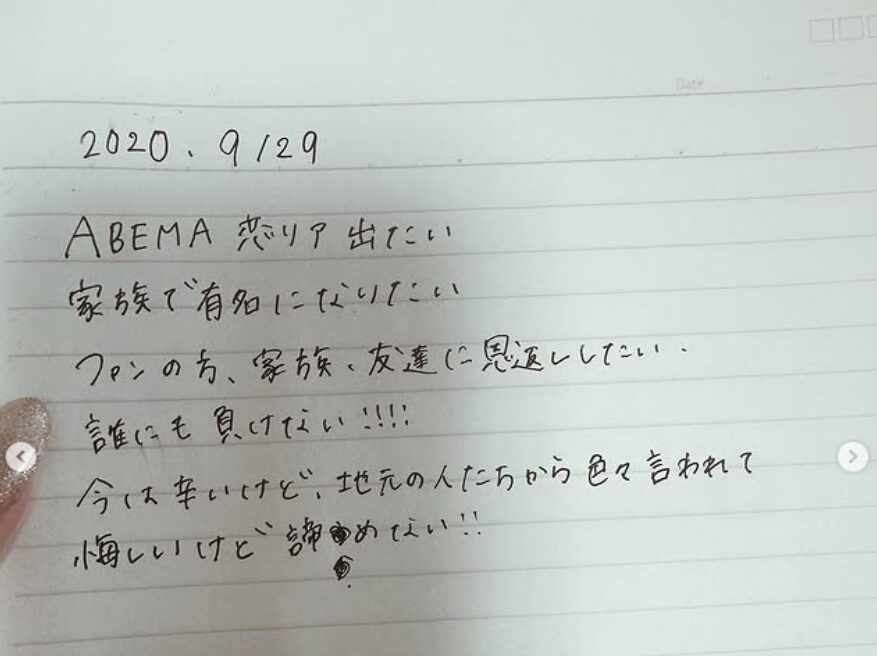 Date
2020. 9/29
ABEMA 恋リア 出たい
家族で有名になりたい
ファンの方、家族、友達に恩返ししたい.
誰にも負けない!!!!
今は辛いけど、地元の人たちから色々言われて
悔しいけど諦めない!!